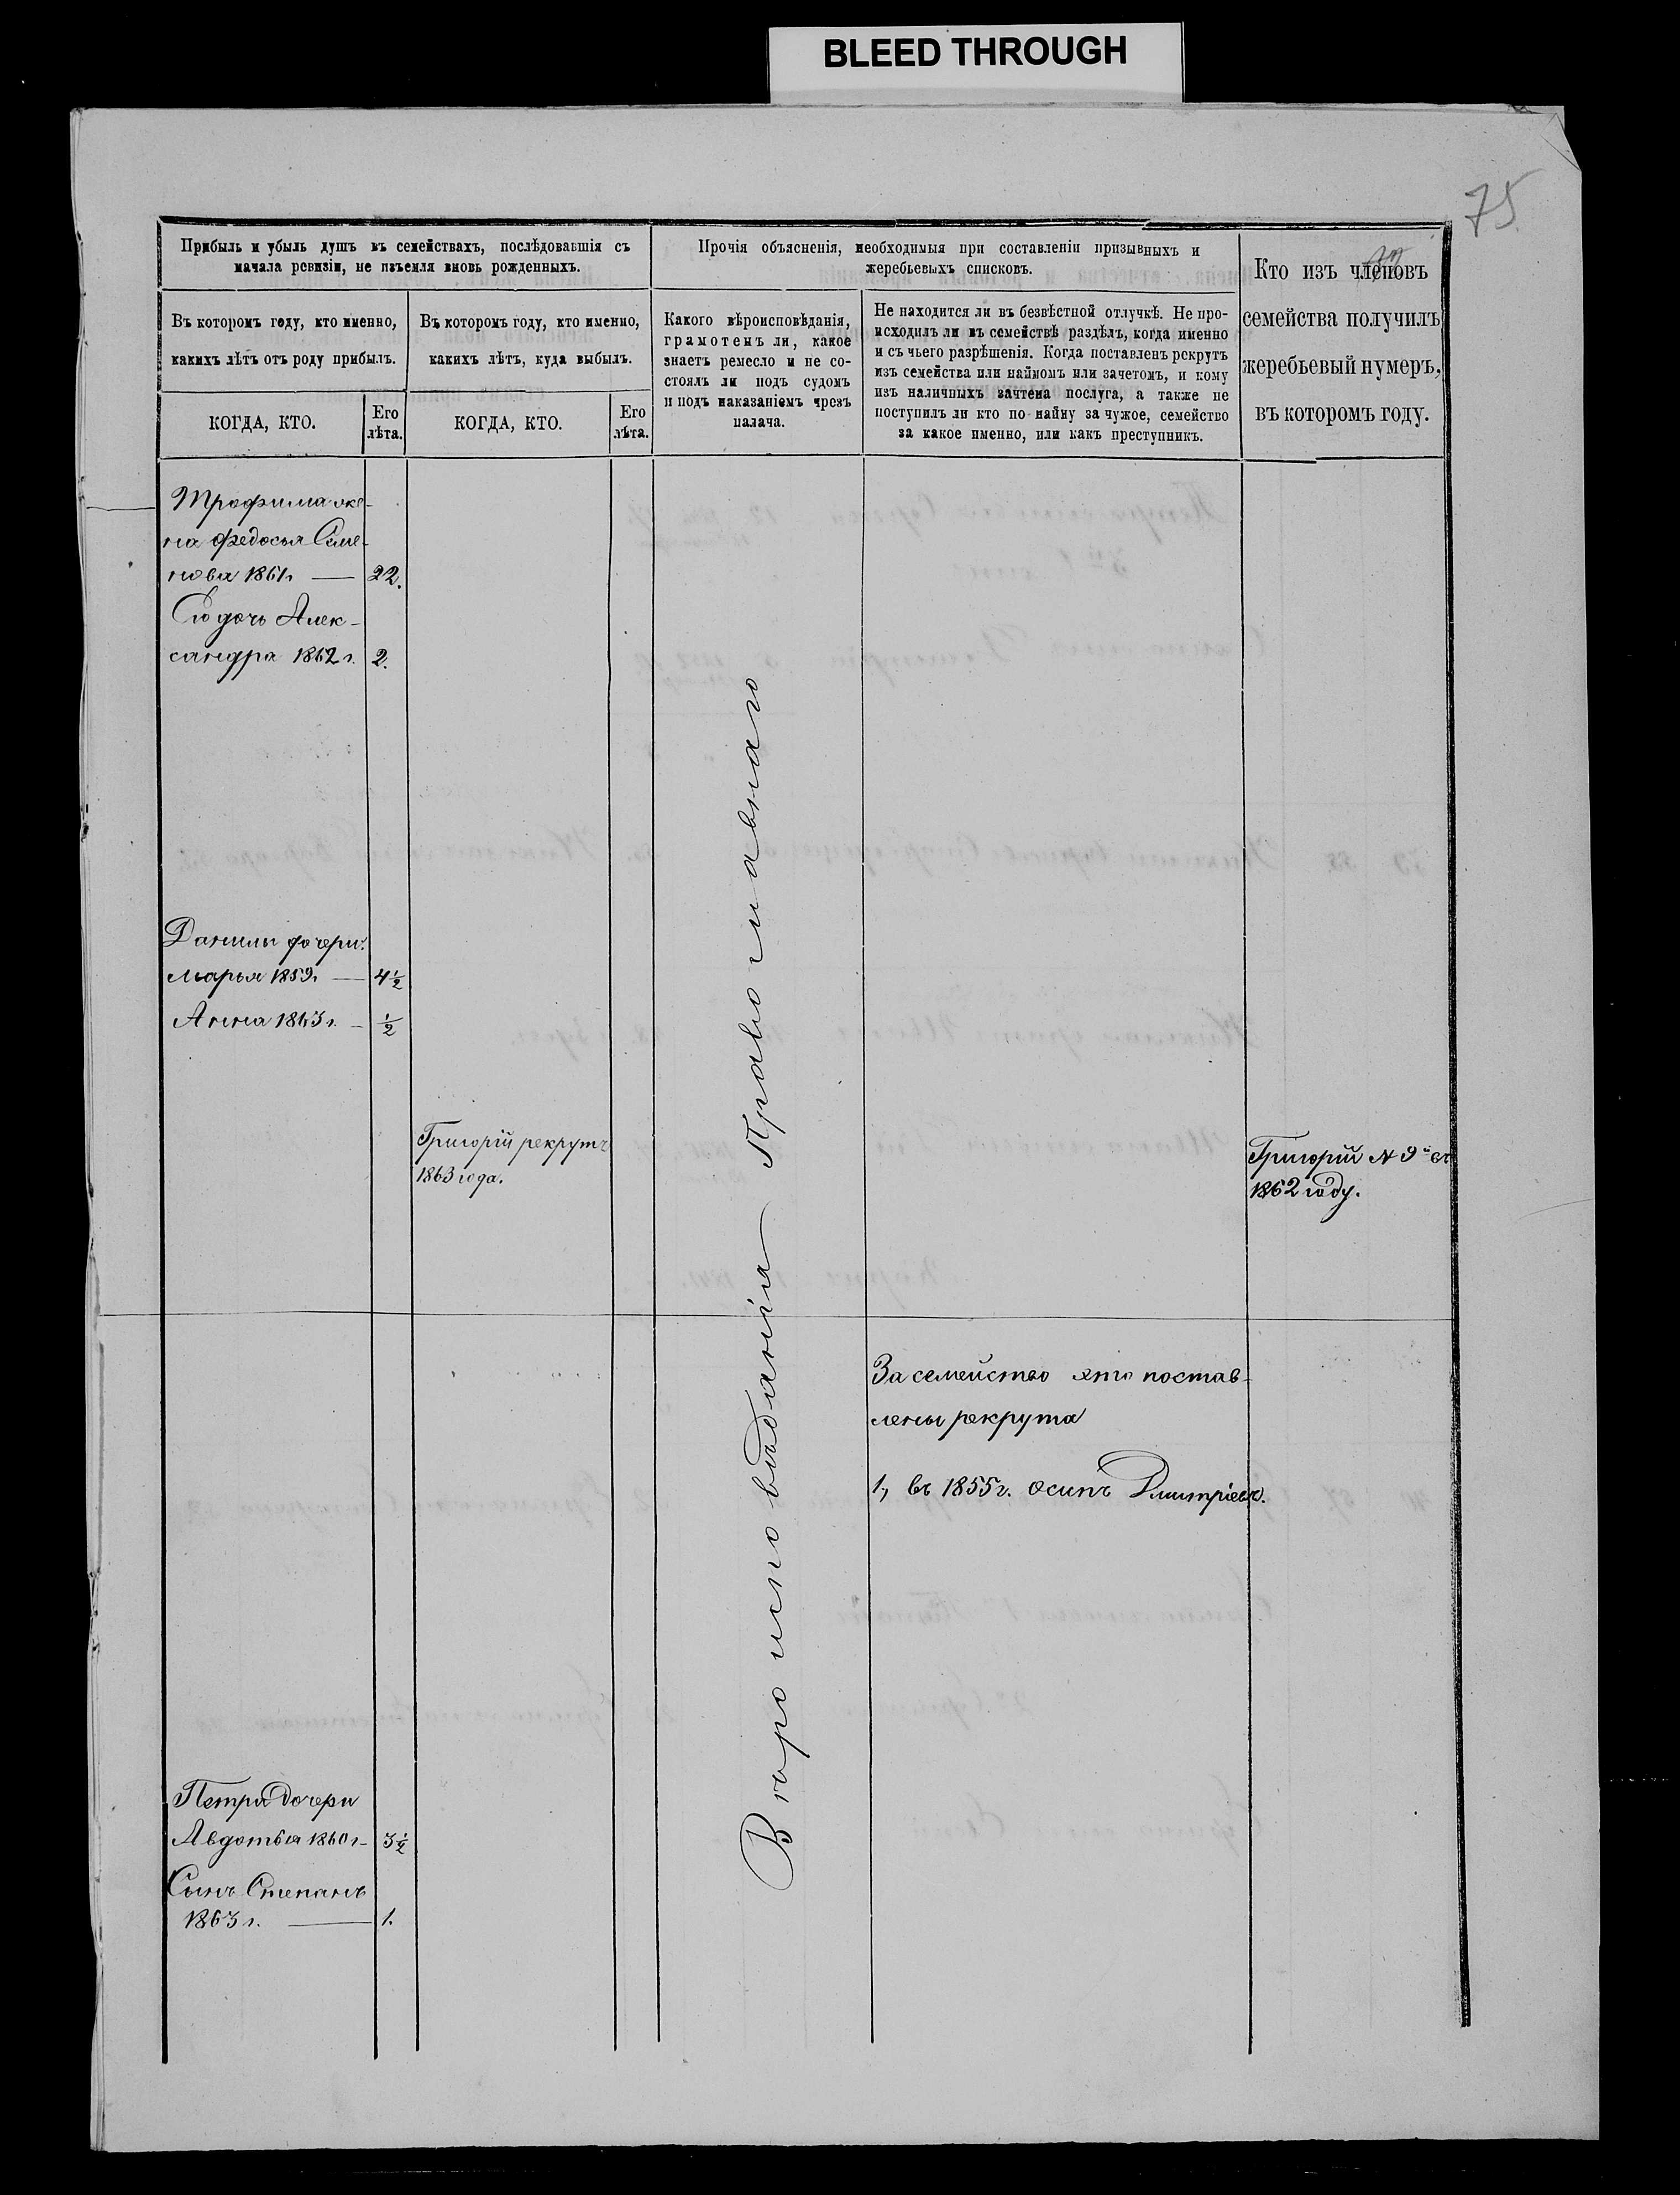 BLEED THROUGH
75.
Прибыль и убыль душъ въ семействахъ, послѣдовавшія съ
начала ревизіи, не изъемля вновь рожденныхъ.
Въ которомъ году, кто именно,
какихъ лѣтъ отъ роду прибылъ.
КОГДА, КТО.
Его
лѣта.
Въ которомъ году, кто именно,
какихъ лѣтъ, куда выбылъ.
КОГДА, КТО.
Его
лѣта.
Прочія объясненія, необходимыя при составленіи призывныхъ и
жеребьевыхъ списковъ.
Какого вѣроисповѣданія,
грамотенъ ли, какое
знаетъ ремесло и не со-
стоялъ ли подъ судомъ
и подъ наказаніемъ чрезъ
палача.
Не находится ли въ безвѣстной отлучкѣ. Не про-
исходилъ ли въ семействѣ раздѣлъ, когда именно
и съ чьего разрѣшенія. Когда поставленъ рекрутъ
изъ семейства или наймомъ или зачетомъ, и кому
изъ наличныхъ зачтена послуга, а также не
поступилъ ли кто по найму за чужое, семейство
за какое именно, или какъ преступникъ.
Кто изъ членовъ
семейства получилъ
жеребьевый нумеръ,
въ которомъ году.
Трофима же-
на Федосья Семе-
нова 1861г. — 22.
Ею дочь Алек-
сандра 1862 г. 2.
Данилы дочери:
Марья 1859г. — 4½
Анна 1863 г. — ½
Григорій рекрутъ
1863 года.
Григорій № 9й въ
1862 году.
Вѣроисповѣданія Православнаго
За семейство это постав-
лены рекрута
1, въ 1855 г. Осипъ Дмитріевъ.
Петра дочери
Авдотья 1860 г — 3½
Сынъ Степанъ
1863 г. — 1.